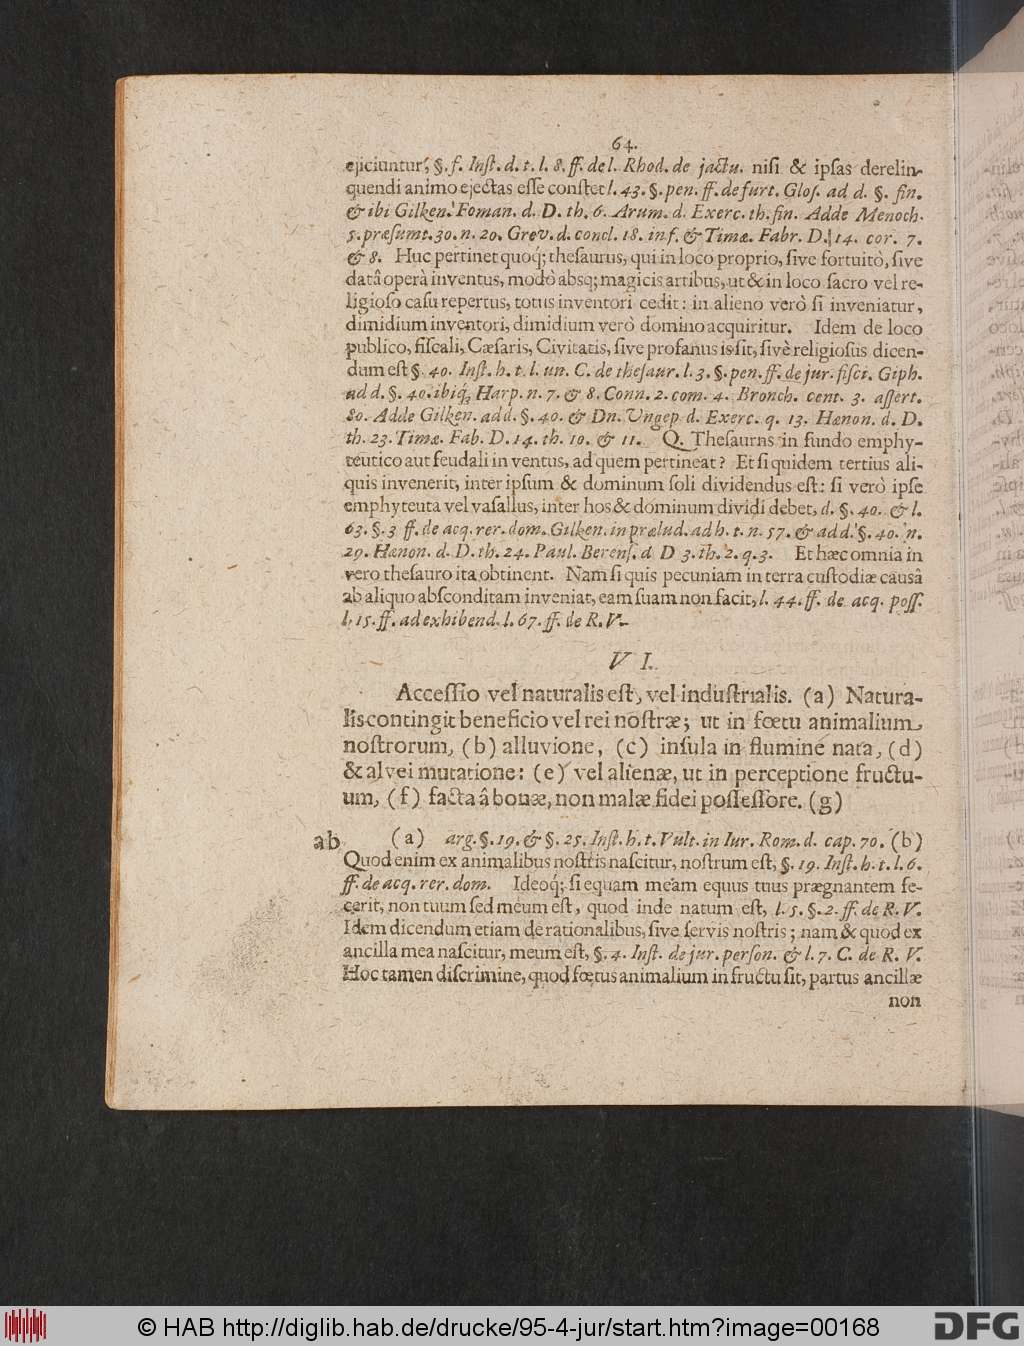 64.
ejiciuntur, §. f. Inſt. d. t. l. 8. ff. de l. Rhod. de jactu. niſi & ipſas derelin-
quendi animo ejectas eſſe conſtet l. 43. §. pen. ff. de furt. Gloſ. ad d. §. fin.
& ibi Gilken. Foman. d. D. th. 6. Arum. d. Exerc. th. fin. Adde Menoch.
5. præſumt. 30. n. 20. Grev. d. concl. 18. inf. & Timæ. Fabr. D. 14. cor. 7.
& 8. Huc pertinet quoq́; theſaurus, qui in loco proprio, ſive fortuitò, ſive
datâ operà inventus, modò absq; magicis artibus, ut & in loco ſacro vel re-
ligioſo caſu repertus, totus inventori cedit: in alieno verò ſi inveniatur,
dimidium inventori, dimidium verò domino acquiritur. Idem de loco
publico, fiſcali, Cæſaris, Civitatis, ſive profanus is ſit, ſivè religioſus dicen-
dum eſt §. 40. Inſt. h. t. l. un. C. de theſaur. l. 3. §. pen. ff. de jur. fiſci. Giph.
ad d. §. 40. ibiq́; Harp. n. 7. & 8. Conn. 2. com. 4. Bronch. cent. 3. aſſert.
80. Adde Gilken. ad d. §. 40. & Dn. Ungep d. Exerc. q. 13. Hænon. d. D.
th. 23. Timæ. Fab. D. 14. th. 10. & 11. Q. Theſaurns in fundo emphy-
teutico aut feudali in ventus, ad quem pertineat? Et ſi quidem tertius ali-
quis invenerit, inter ipſum & dominum ſoli dividendus eſt: ſi verò ipſe
emphyteuta vel vaſallus, inter hos & dominum dividi debet, d. §. 40. & l.
63. §. 3 ff. de acq. rer. dom. Gilken. in prælud. ad h. t. n. 57. & ad d. §. 40. n.
29. Hænon. d. D. th. 24. Paul. Berenſ. d D 3. th. 2. q. 3. Et hæc omnia in
vero theſauro ita obtinent. Nam ſi quis pecuniam in terra cuſtodiæ causâ
ab aliquo abſconditam inveniat, eam ſuam non facit, l. 44. ff. de acq. poſſ.
l. 15. ff. ad exhibend. l. 67. ff. de R. V.
VI.
Acceſſio vel naturalis eſt, vel induſtrialis. (a) Natura-
lis contingit beneficio vel rei noſtræ; ut in fœtu animalium
noſtrorum, (b) alluvione, (c) inſula in flumine nata, (d)
& alvei mutatione: (e) vel alienæ, ut in perceptione fructu-
um, (f) facta â bonæ, non malæ fidei poſſeſſore. (g)
ab (a) arg. §. 19. & §. 25. Inſt. h. t. Vult. in Iur. Rom. d. cap. 70. (b)
Quod enim ex animalibus noſtris naſcitur, noſtrum eſt, §. 19. Inſt. h. t. l. 6.
ff. de acq. rer. dom. Ideoq́; ſi equam meam equus tuus prægnantem fe-
cerit, non tuum ſed meum eſt, quod inde natum eſt, l. 5. §. 2. ff. de R. V.
Idem dicendum etiam de rationalibus, ſive ſervis noſtris; nam & quod ex
ancilla mea naſcitur, meum eſt, §. 4. Inſt. de jur. perſon. & l. 7. C. de R. V.
Hoc tamen diſcrimine, quod fœtus animalium in fructu ſit, partus ancillæ
non
© HAB http://diglib.hab.de/drucke/95-4-jur/start.htm?image=00168
DFG